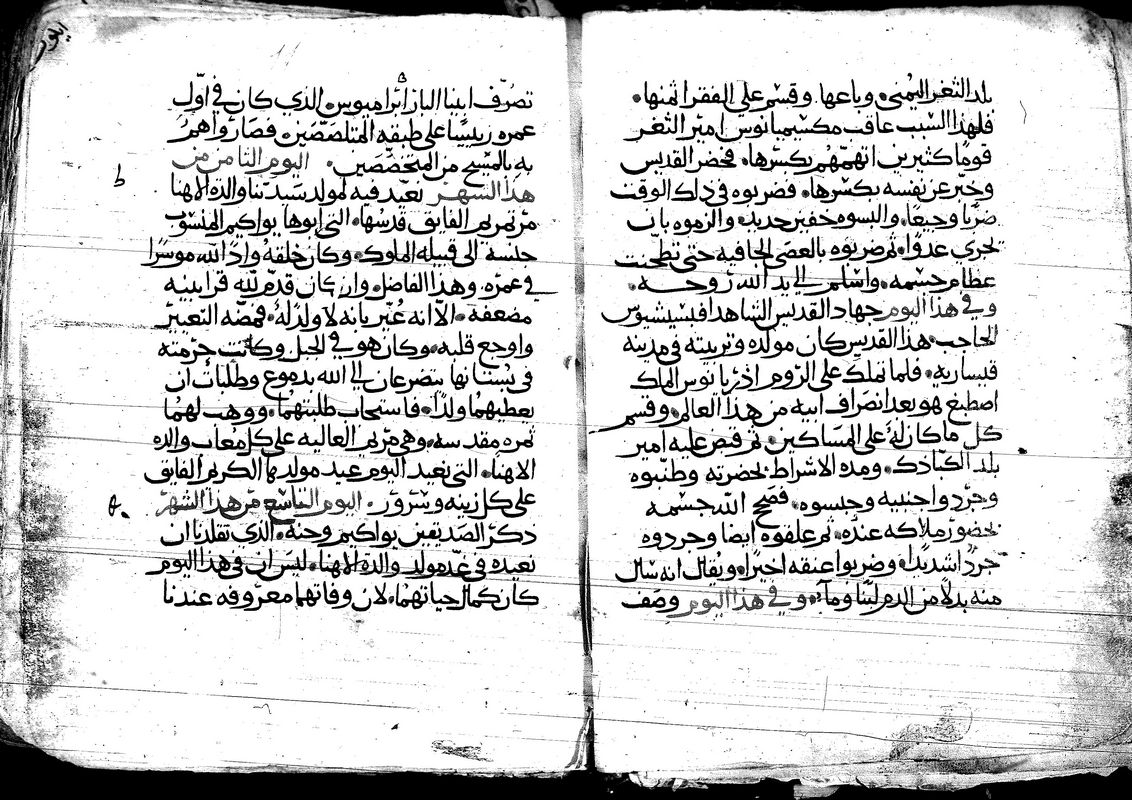 بلد الثغر اليمنى. وباعها وقسم على الفقرا ثمنها.
فلهذا السبب عاقب مكسيميانوس امير الثغر
قومًا كثيرين اتهمهم بكسرها. فحضر القديس
وخبر عن نفسه بكسرها. فضربوه في ذلك الوقت
ضربًا وجيعًا. والبسوه خفين حديد. والزموه بان
تجري عدوًا. ثم ضربوه بالعصى الجافيه حتى تطحنت
عظام جسمه. واسلم الى يد الله روحه.
وفي هذا اليوم جهاد القديس الشاهد افبسيشيوس
الحاجب. هذا القديس كان مولده وتربيته في مدينة
قيساريه. فلما تملك على الروم اذريانوس الملك
اصطبغ هو بعد انصراف ابيه من هذا العالم. وقسم
كل ما كان له على المساكين. ثم قبض عليه امير
بلد الكبادك. ومده الاشراط بحضرته وطنبوه
وجرد واجنبيه وحبسوه. فصحح الله جسمه
بحضور ملاكه عنده. ثم علقوه ايضا وجردوه
جردًا شديدًا. وضربوا عنقه اخيرًا. ويقال انه سال
منه بدلًا من الدم لبنًا وماءً. وفي هذا اليوم وصف
ايلول
تصرف ابينا البار اثراميوس. الذي كان في اول
عمره رييسًا على طبقه المتلصصين. فصار واهم
به بالمسيح من المتخصصين. اليوم الثامن من
ط
هذا الشهر نعيد فيه لمولد سيدتنا والدة الاهنا
مرتمريم الفايق قدسها. التي ابوها يواكيم المنسوب
جنسه الى قبيلة الملوك. وكان خلقه واد الله موسرًا
في عمره. وهذا الفاضل وان كان قدم لله قرابينه
مضعفه. الا انه عُيّر بانه لا ولد له. فمضه التعيير
واوجع قلبه. وكان هو في الجبل وكانت حرمته
في بستانها يتضرعان الى الله بدموع وطلبات ان
يعطيهما ولدًا. فاستجاب طلبتهما. ووهب لهما
ثمره مقدسه. وهي مريم العاليه على كل معاب والدة
الاهنا. التي نعيد اليوم عيد مولدها الكريم الفايق
على كل زينه وسرور. اليوم التاسع من هذا الشهر
ذكر الصديقين يواكيم وحنه. الذي تقلدنا ان
نعيده في غد مولد والدة الاهنا. ليس ان في هذا اليوم
كان كمال حياتهما. لان وفاتهما معروفه عندنا